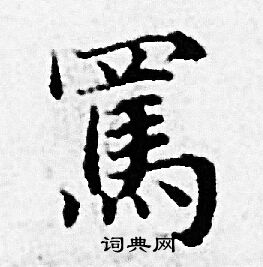 罵
词典网